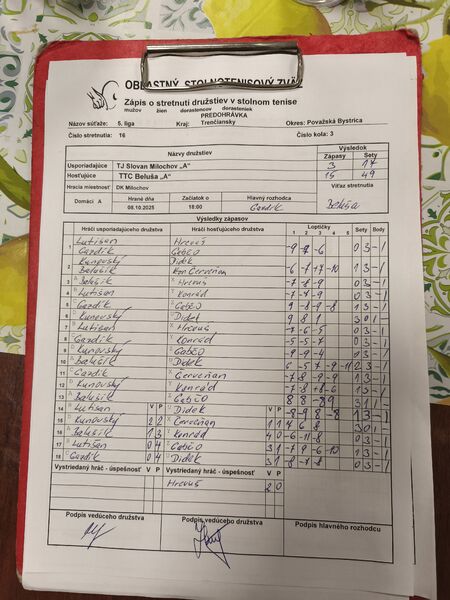 OBLASTNÝ STOLNOTENISOVÝ ZVÄZ
Zápis o stretnutí družstiev v stolnom tenise
mužov žien dorastencov dorasteniek
PREDOHRÁVKA
Názov súťaže: 5. liga Kraj: Trenčiansky Okres: Považská Bystrica
Číslo stretnutia: 16 Číslo kola: 3
Názvy družstiev Výsledok
Zápasy Sety
Usporiadajúce TJ Slovan Milochov „A" 3 17
Hosťujúce TTC Beluša „A" 15 49
Hracia miestnosť DK Milochov Víťaz stretnutia
Domáci A Hrané dňa Začiatok o Hlavný rozhodca
08.10.2025 18:00 Gardík Beluša
Výsledky zápasov
Hráči usporiadajúceho družstva Hráči hosťujúceho družstva Loptičky Sety Body
1 2 3 4 5
1 Lutišan Hrevuš
Gardík Gabčo -9 -7 -6 0 3 -1
2 Kunovský Didek
Balušík Kon Červeňan -6 -7 +7 -10 1 3 -1
3 Balušík Hrevuš -7 -8 -9 0 3 -1
4 Lutišan Konrád -7 -7 -9 0 3 -1
5 Gardík Gabčo 1 3 -1
6 Kunovský Didek 9 8 1 3 0 1
7 Lutišan Hrevuš -7 -6 -5 0 3 -1
8 Gardík Konrád -5 -5 -7 0 3 -1
9 Kunovský Gabčo -9 -9 -4 0 3 -1
10 Balušík Didek 6 -5 7 -9 -11 2 3 -1
11 Gardík Červeňan 0 3 -1
12 Kunovský Konrád 1 3 -1
13 Balušík Gabčo 3 1 1
14 Lutišan V P Didek V P -8 -9 8 -8 1 3 -1
15 Kunovský 2 2 Červeňan 1 1 4 6 8 3 0 1
16 Balušík 1 3 Konrád 4 0 -6 -11 -8 0 3 -1
17 Lutišan 0 4 Gabčo 3 1 -7 9 -6 -10 1 3 -1
18 Gardík 0 4 Didek 3 1 -8 -7 -8 0 3 -1
Vystriedaný hráč - úspešnosť V P Vystriedaný hráč - úspešnosť V P
Hrevuš 2 0
Podpis vedúceho družstva Podpis vedúceho družstva Podpis hlavného rozhodcu